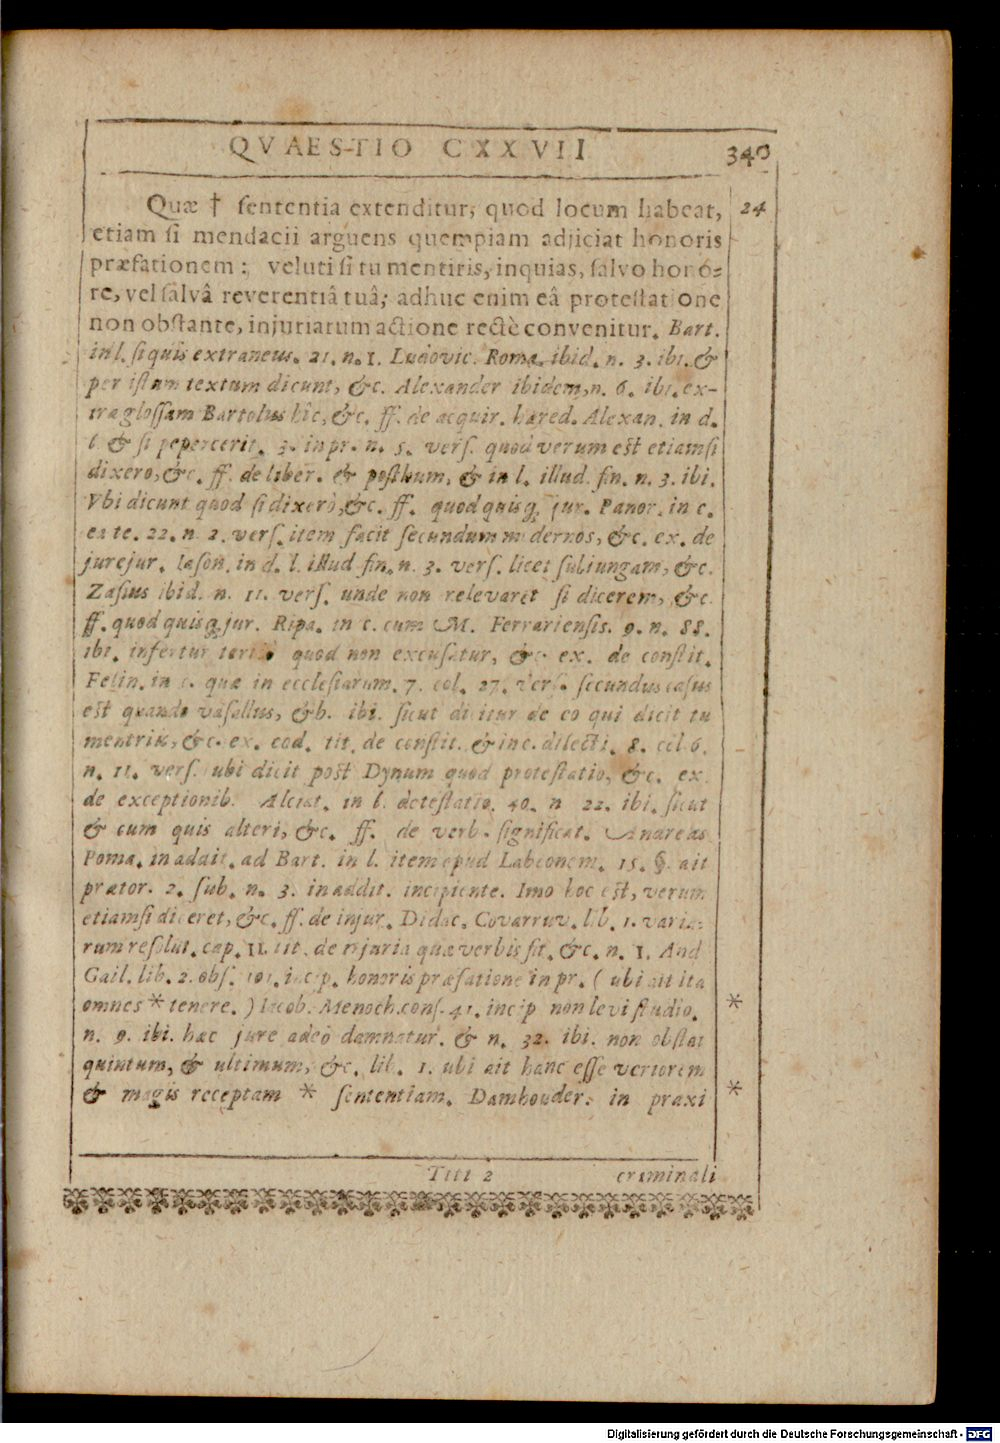 QVAESTIO CXXVII 340
Quæ † sententia extenditur, quod locum habeat, 24
etiam si mendacii arguens quempiam adjiciat honoris
præfationem: veluti si tu mentiris, inquias, salvo hono-
re, vel salvâ reverentiâ tuâ; adhuc enim eâ protestatione
non obstante, injuriarum actione rectè convenitur. Bart.
in l. si quis extraneus. 21. n. 1. Ludovic. Roma. ibid. n. 3. ibi. &
per istum textum dicunt, &c. Alexander ibidem, n. 6. ibi. ex-
tra glossam Bartolus hîc, &c. ff. de acquir. hæred. Alexan. in d.
l. & si pepercerit. 3. in pr. n. 5. vers. quod verum est etiamsi
dixero, &c. ff. de liber. & posthum, & in l. illud. fin. n. 3. ibi.
Vbi dicunt quod si dixero, &c. ff. quod quisq; jur. Panor. in c.
ex te. 22. n. 2. vers. item facit secundum modernos, &c. ex. de
jurejur. Iason. in d. l. illud fin. n. 3. vers. licet subiungam, &c.
Zasius ibid. n. 11. vers. unde non relevaret si dicerem, &c.
ff. quod quisq; jur. Ripa. in c. cum M. Ferrariensis. 9. n. 88.
ibi. infertur tertiò quod non excusatur, &c. ex. de constit.
Felin. in c. quæ in ecclesiarum. 7. col. 27. vers. secundus casus
est quando vasallus, &b. ibi. sicut dicitur de eo qui dicit tu
mentiris, &c. ex. eod. tit. de constit. & in c. dilecti. 8. col 6.
n. 11. vers. ubi dicit post Dynum quod protestatio, &c. ex.
de exceptionib. Alciat. in l. detestatio. 40. n 22. ibi. sicut
& cum quis alteri, &c. ff. de verb. significat. Andreas
Poma. in adait. ad Bart. in l. item apud Labeonem. 15. §. ait
prætor. 2. sub. n. 3. in addit. incipiente. Imo hoc est, verum
etiamsi diceret, &c. ff. de injur. Didac. Covarruv. lib. 1. varia-
rum resolut. cap. 11. tit. de injuria quæ verbis fit, &c. n. 1. And
Gail. lib. 2. obs. 101. incip. honoris præfatione in pr. ( ubi ait ita
omnes * tenere. ) Iacob. Menoch. cons. 41. incip non levi studio. *
n. 9. ibi. hæc jure adeò damnatur. & n. 32. ibi. non obstat
quintum, & ultimum, &c. lib. 1. ubi ait hanc esse veriorem
& magis receptam * sententiam. Damhouder. in praxi *
Ttt 2 criminali
Digitalisierung gefördert durch die Deutsche Forschungsgemeinschaft - DFG